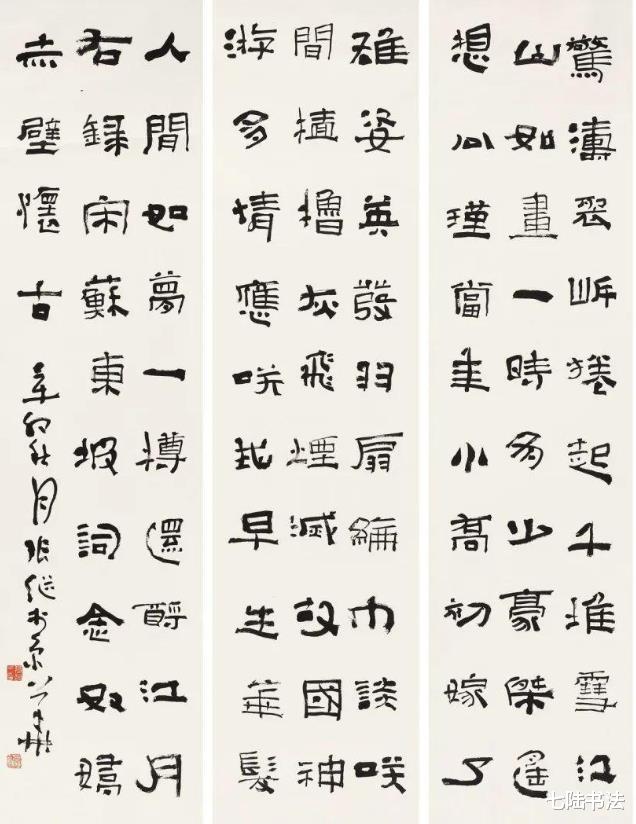 驚濤裂岸捲起千堆雪江
山如畫一時多少豪傑遥
想公瑾當年小喬初嫁了
雄姿英發羽扇綸巾談咲
間檣櫓灰飛煙滅故國神
游多情應咲我早生華髮
人間如夢一樽還酹江月
右録宋蘇東坡詞念奴嬌
赤壁懷古 辛卯秋月張继於京
七陆书法